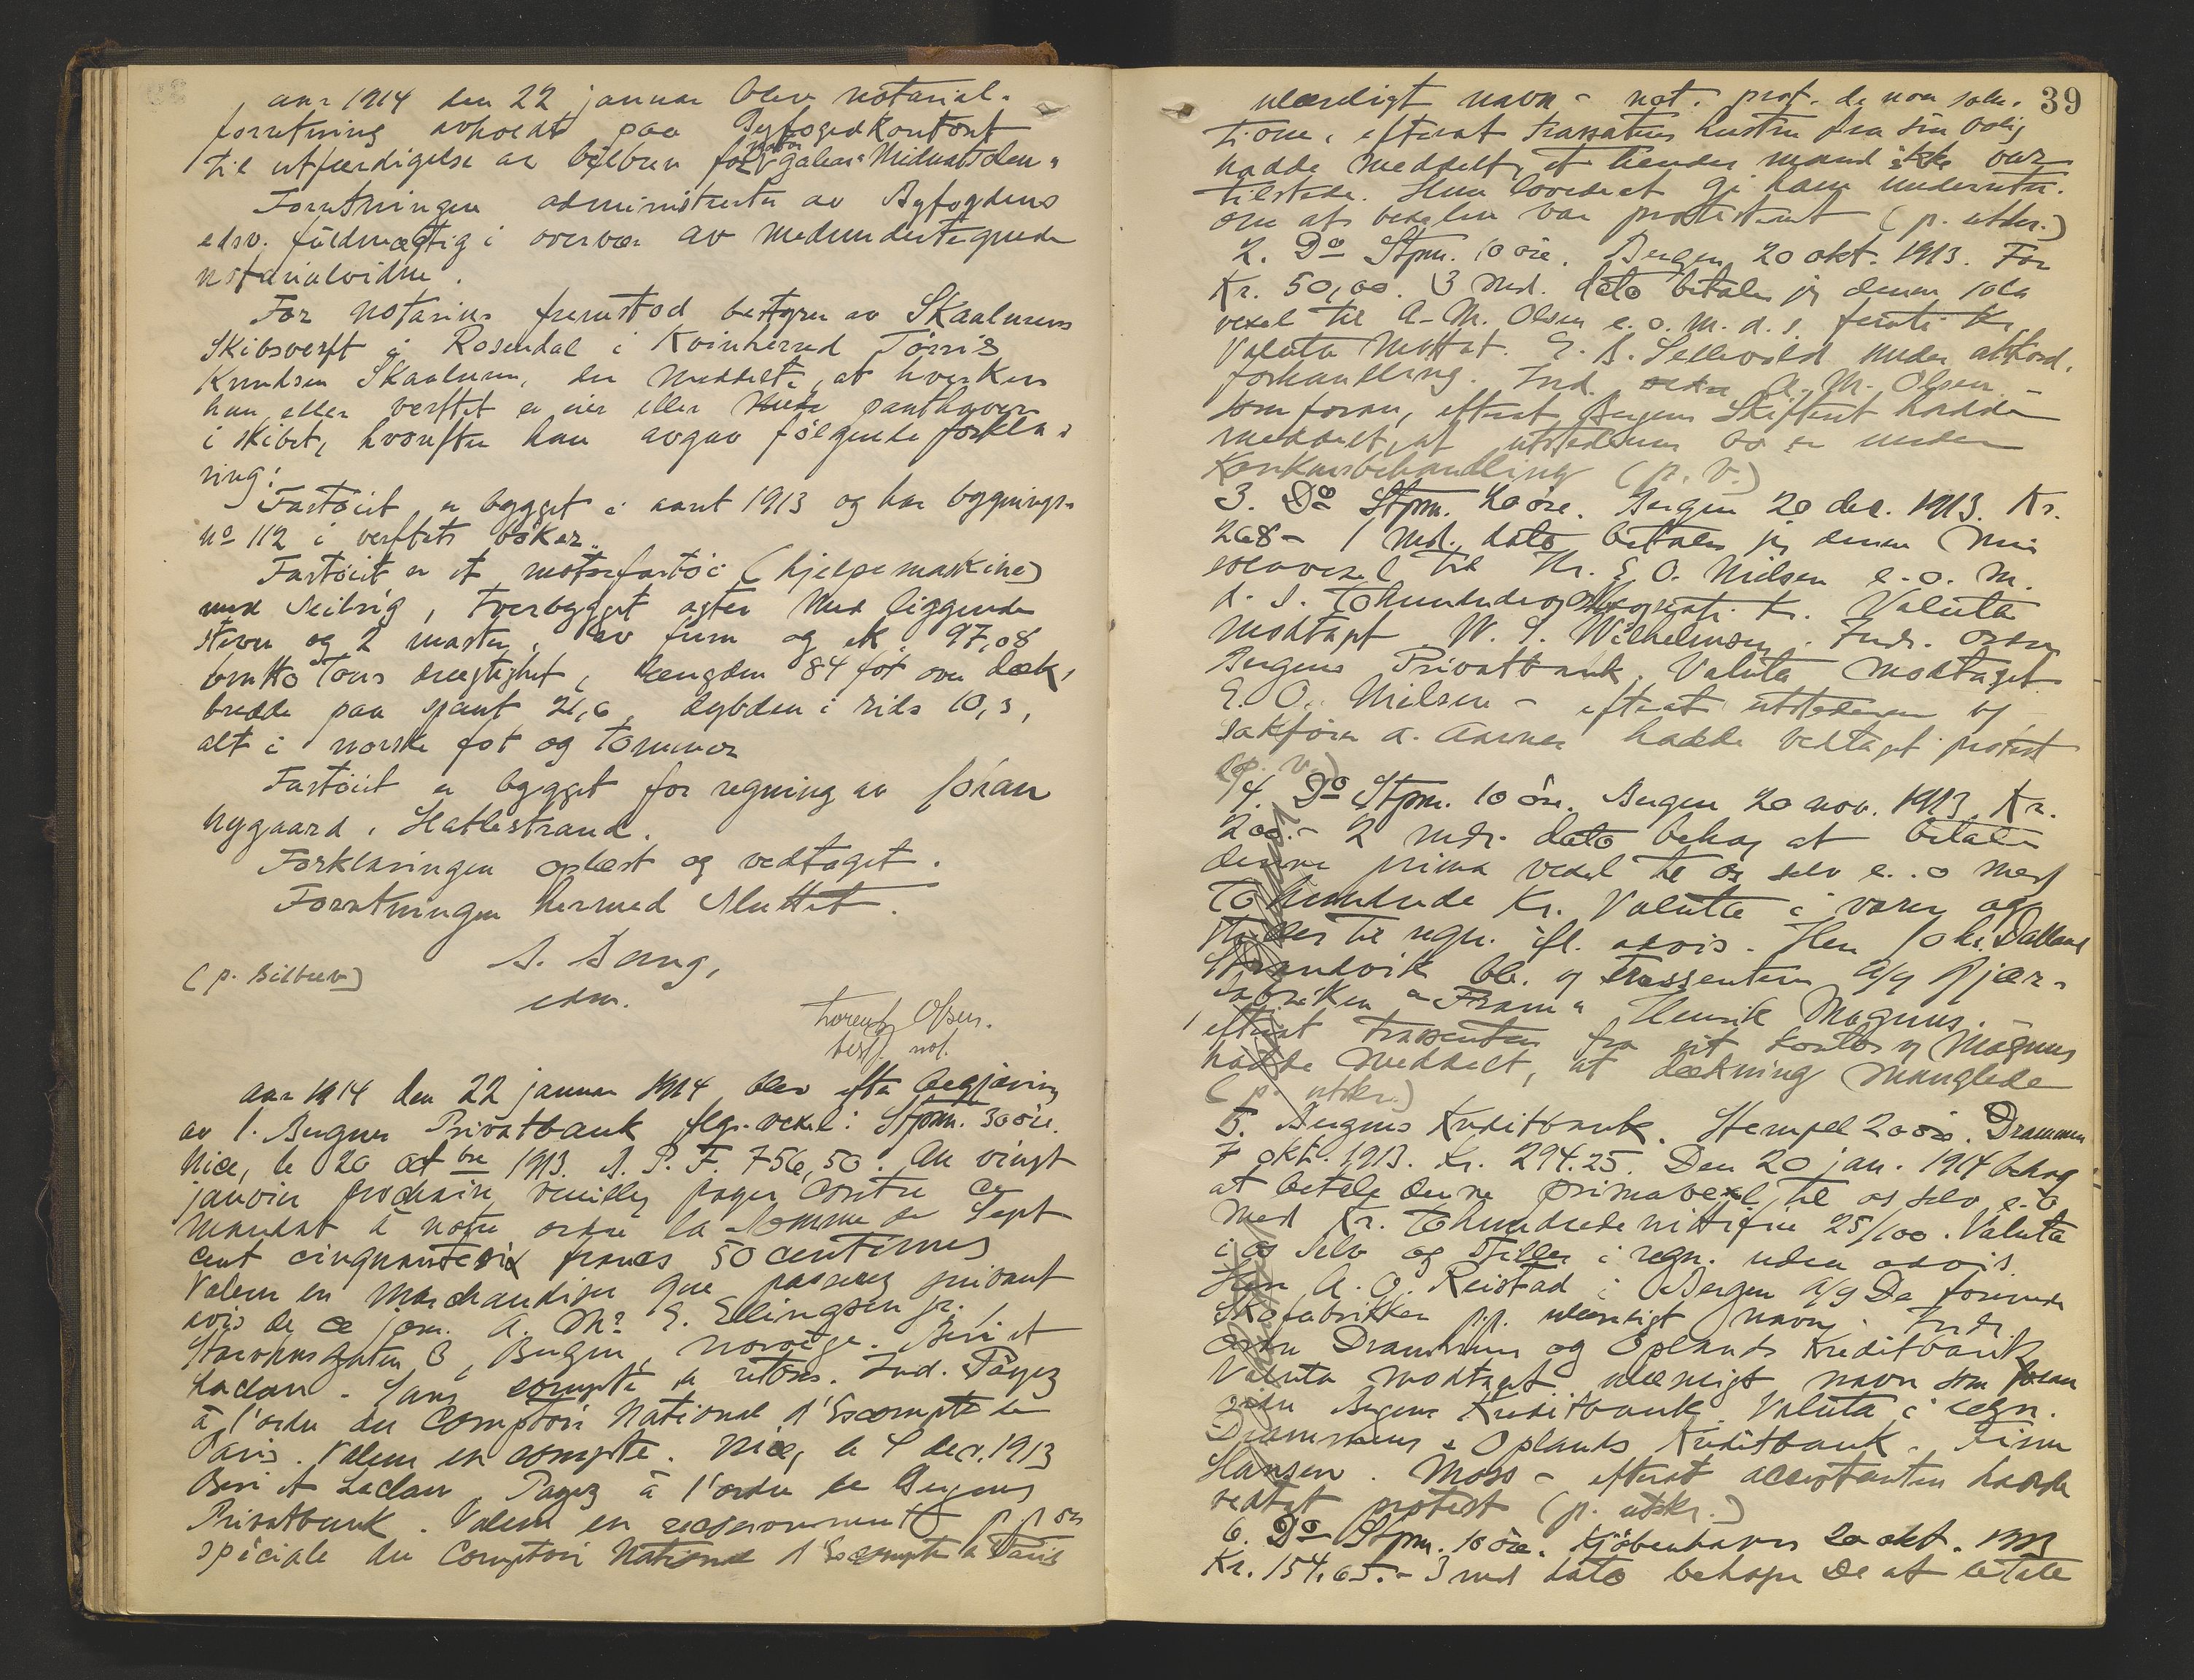 aar 1914 den 22 januar blev notarial-
forretning avholdt paa Byfogedkontoret
til utfærdigelse av bilbrev for motor galeas "Midnatsolen"
Forretningen administrertes av Byfogdens
edsv. fuldmægtig i overvær av medundertegnede
notarialvidne.
For notarius fremstod bestyrer av Skaalurens
Skibsverft i Rosendal i Kvinherred Tørris
Knudsen Skaaluren, der meddelte, at hverken
han eller verftet er eier eller panthaver
i skibet, hvorefter han avgav følgende forkla-
ring:
Fartøiet er bygget i aaret 1913 og har bygnings-
no 112 i verftets bøker.
Fartøiet er et motorfartøi (hjelpemaskine)
med seilrig, tverbygget agter med liggende
stevn og 2 master, av furu og ek. 97,08
brutto tons drægtighet, længden 84 fot over dæk,
bredde paa spant 21,6, dybden i rids 10,3,
alt i norske fot og tommer
Fartøiet er bygget for regning av Johan
Nygaard, Hatlestrand.
Forklaringen oplæst og vedtaget.
Forretningen hermed sluttet.
S. Bang,
(p. Bilbrev)
edsv.
Lorentz Olsen.
best. not.
aar 1914 den 22 januar 1914 blev efter begjæring
av 1. Bergens Privatbank flg. vexel: Stpm. 30 øre.
Nice, le 20 oct bre 1913. B. P. F. 756,50. Au vingt
janvier prochain veuillez payer contre ce
mandat à notre ordre la somme de Sept
cent cinquante six francs 50 centimes
Valeur en marchandises que passerez suivant
avis de ce jour. A. Mr. E. Ellingsen jr.
Bergen, Norvège. Beri et
Leclan. Sans compte de retour. Ind. Payez
à l'ordre du Comptoir National d'Escompte de
Paris. Valeur en compte. Nice, le 4 dec. 1913
Beri et Leclan. Payez à l'ordre de Bergens
Privatbank. Valeur en recouvrement p. p. on
spéciale du Comptoir National d'Escompte de Paris
39
ulæseligt navn - not. prot. de non solu-
tione, efterat trassatens hustru fra sin bolig
hadde meddelt, at hendes mand ikke var
tilstede. Hun lovede at gi ham underretn.
om at vexelen var protestert (p. utskr.)
2. Do Stpm. 10 øre. Bergen 20 okt. 1913. For
Kr. 50,00. 3 Md. dato betaler jeg denne sola
vexel til A. M. Olsen e. o. m. d. s. femti Kr.
Valuta mottat. E. B. Sellevold under akkord.
forhandling. Ind. ordre A. M. Olsen -
som foran, efterat Bergens Skifteret hadde
meddelt, at utstederens bo er under
Konkursbehandling (p. v.)
3. Do Stpm. 20 øre. Bergen 20 dec. 1913. Kr.
268 - 1 Md. dato betaler jeg denne min
solavexel til Hr. E. O. Nielsen e. o. m.
d. s. Kr. Valuta
modtaget W. S. Wilhelmsen. Ind. ordre
Bergens Privatbank. Valuta modtaget
E. O. Nielsen - efterat utstederen og
Sakfører A. Aarnes hadde vedtaget protest
(p. v.)
4. Do Stpm. 10 øre. Bergen 20 nov. 1913 Kr.
200.- 2 mdr. dato behag at betale
denne prima vexel til os selv e. o med
Tohundrede Kr. Valutta i varer og
stilles til regn. ifl. advis. Herr Johs. Dalland
Strandvik bb. og trassenten A/S Fjær-
fabriken "Fram" Henrik Magnus.
efterat trassenten fra sit kontor v Magnus
hadde meddelt, at dækning manglede
(p. utskr.)
5. Bergens Kreditbank. Stempel 20 øre. Drammen
7 okt. 1913. Kr. 294.25. Den 20 jan. 1914 behag
at betale denne primavexel til os selv e. o
med Kr. Tohundrede nittifire 25/100. Valuta
i os selv og stilles i regn. uden advis.
Herr A. O. Reistad i Bergen A/S De forenede
Skofabrikker p.p. ulæseligt navn. Ind.
ordre Drammens og Oplands Kreditbank
Valuta modtaget ulæseligt navn som foran
ordre Bergens Kreditbank. Valuta i regn.
Drammens & Oplands Kreditbank. Finn
Hansen. Moss - efterat acceptanten hadde
vedtat protest (p. utskr.)
6. Do Stpm. 10 øre. Kjøbenhavn 20 okt. 1913
Kr. 154.65.- 3 md dato behager De at betale